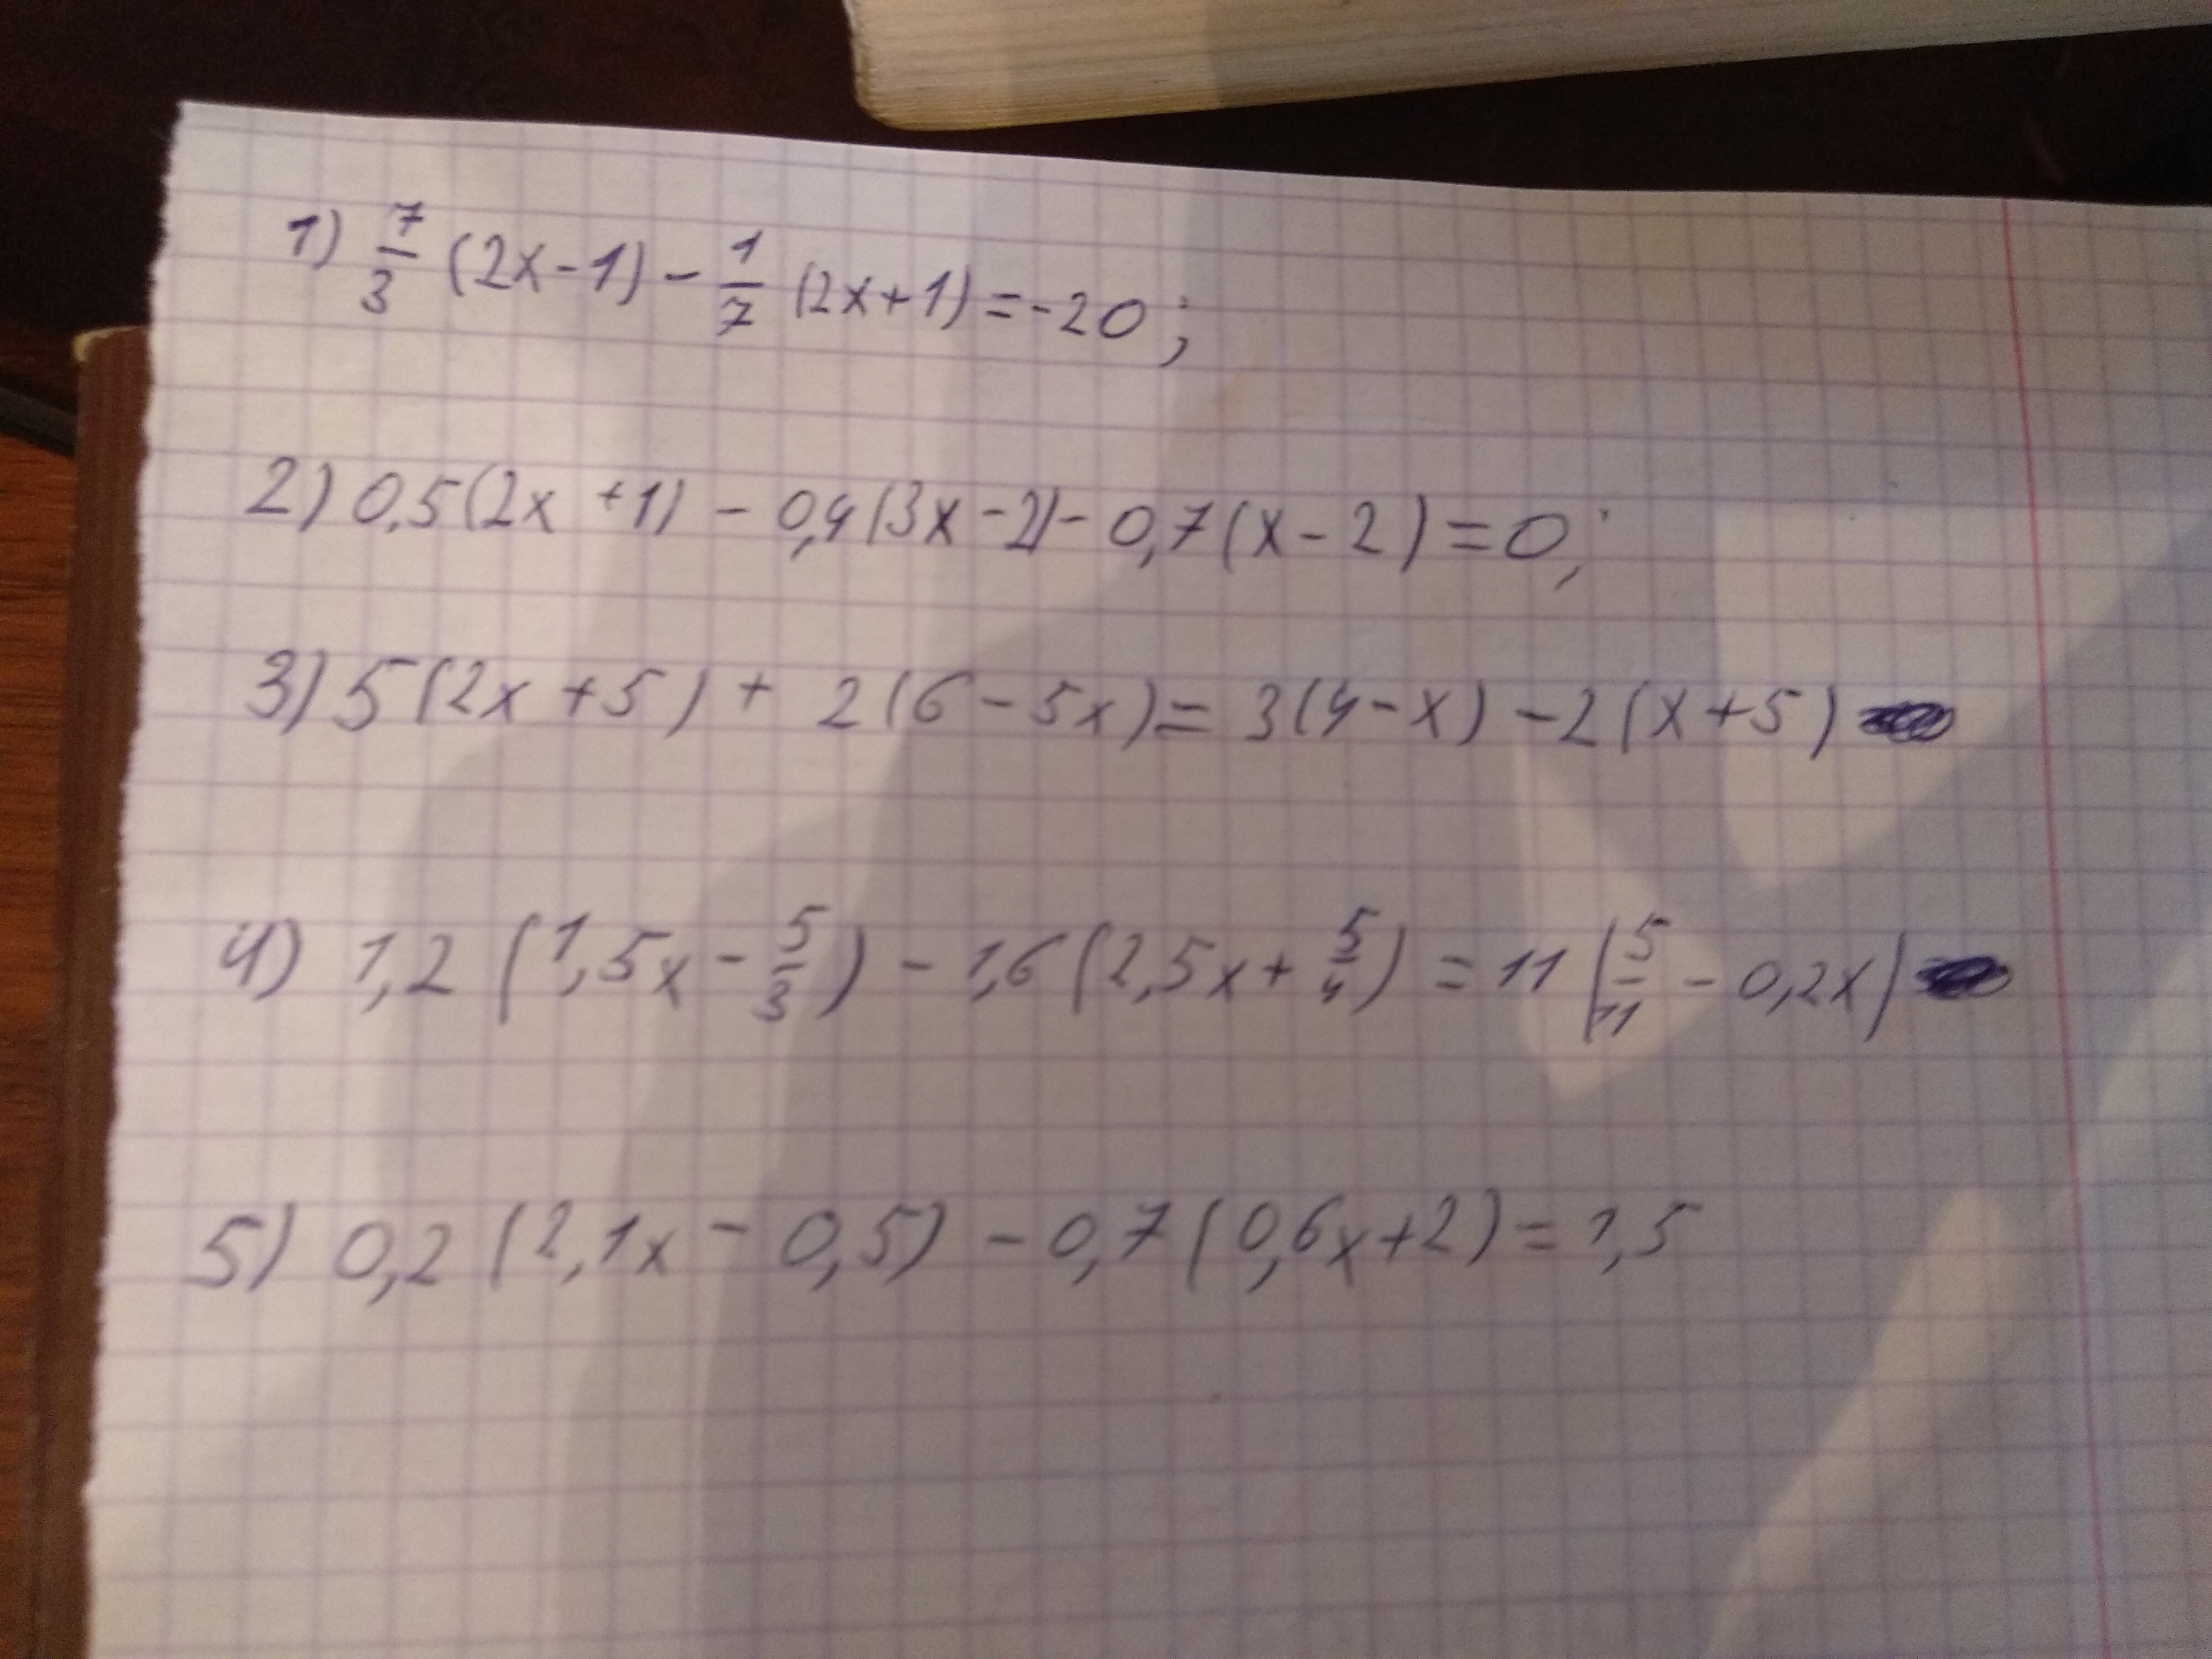 1) 7/3 (2x-1) - 1/7 (2x+1) = -20;
2) 0,5(2x +1) - 0,4(3x-2) - 0,7(x-2) = 0;
3) 5(2x+5) + 2(6-5x) = 3(4-x) - 2(x+5)
4) 1,2 (1,5x - 5/3) - 1,6(2,5x + 5/4) = 11 (5/11 - 0,2x)
5) 0,2 (2,1x - 0,5) - 0,7(0,6x+2) = 1,5